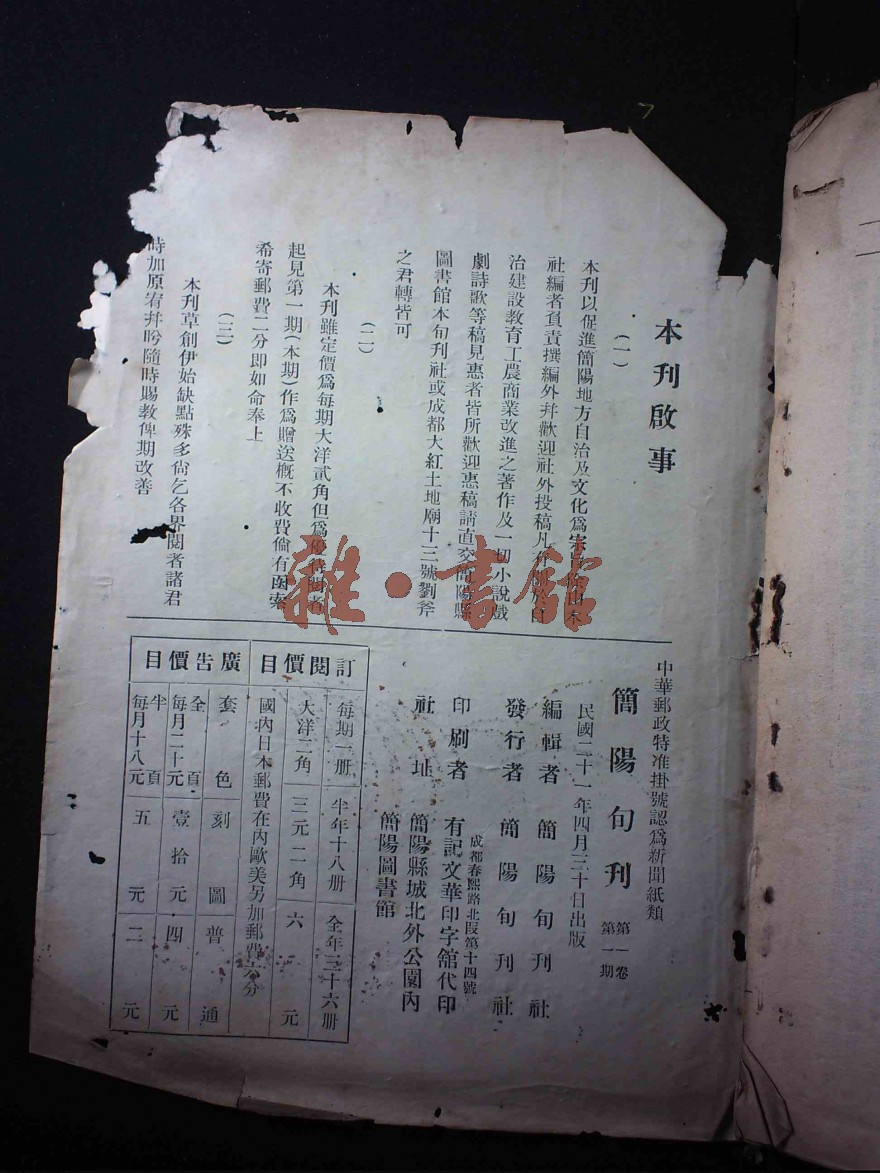 本刋啟事
(一)
本刋以促進簡陽地方自治及文化爲宗
社編者負責撰編外幷歡迎社外投稿凡
治建設教育工農商業改進之著作及一切小說戲
劇詩歌等稿見惠者皆所歡迎惠稿請直交簡陽縣
圖書館本旬刋社或成都大紅土地廟十三號劉斧
之君轉皆可
(二)
本刋雖定價爲每期大洋貳角但爲優待閱者
起見第一期(本期)作爲贈送概不收費倘有函索
希寄郵費二分即如命奉上
(三)
本刋草創伊始缺點殊多尙乞各界閱者諸君
時加原宥幷盼隨時賜教俾期改善
中華郵政特准掛號認爲新聞紙類
簡陽旬刋 第一卷 第一期
民國二十一年四月三十日出版
編輯者 簡陽旬刋社
發行者 簡陽旬刋社
成都春熙路北段第十四號
印刷者 有記文華印字舘代印
社址 簡陽縣城北外公園內
簡陽圖書館
訂閱價目
每期一册 半年十八册 全年三十六册
大洋二角 三元二角 六元
國內日本郵費在內歐美另加郵費六分
廣告價目
套色 刻圖 普通
全頁 每月二十元 壹拾元 四元
半頁 每月十八元 五元 二元
雜·書館